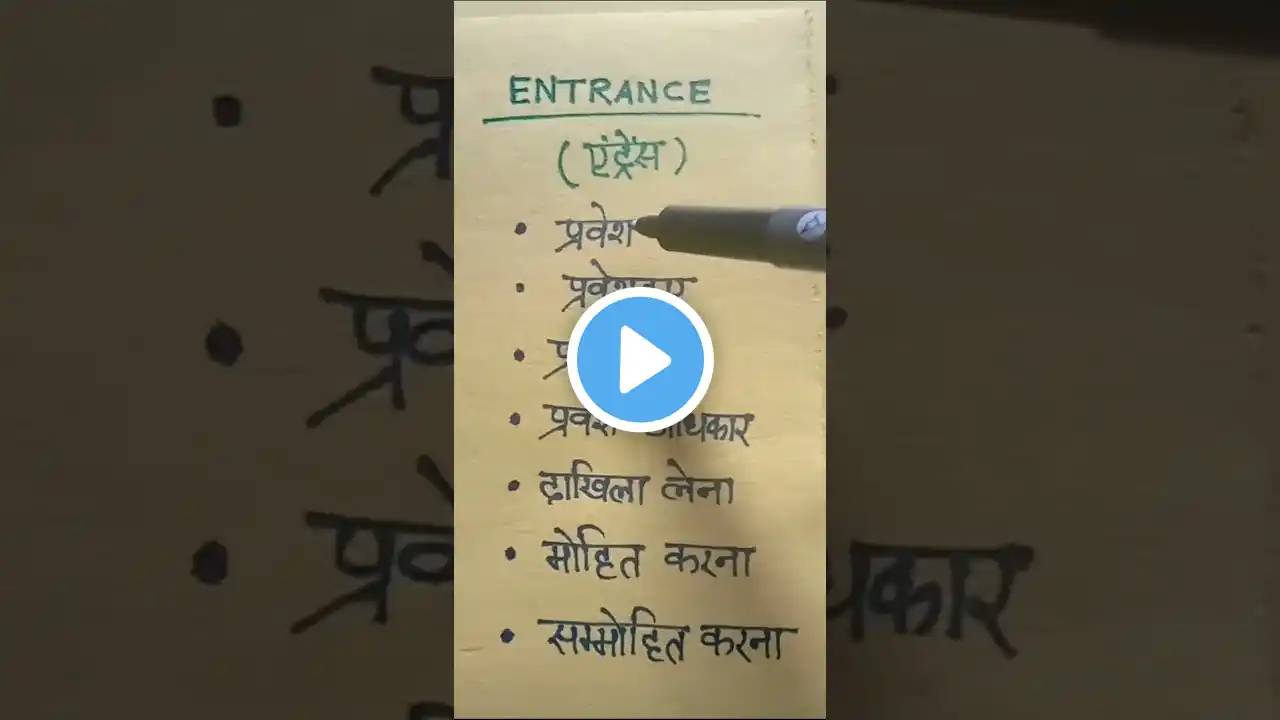 ENTRANCE
(एंट्रेंस)
• प्रवेश
• प्रवेशद्वार
•
• प्रवेश अधिकार
• दाखिला लेना
• मोहित करना
• सम्मोहित करना